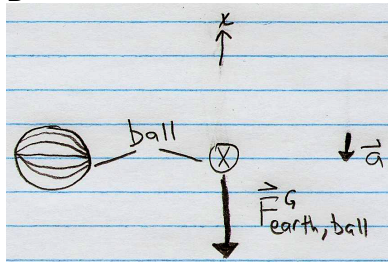 x
ball
X
a⃗
F⃗^G
earth, ball